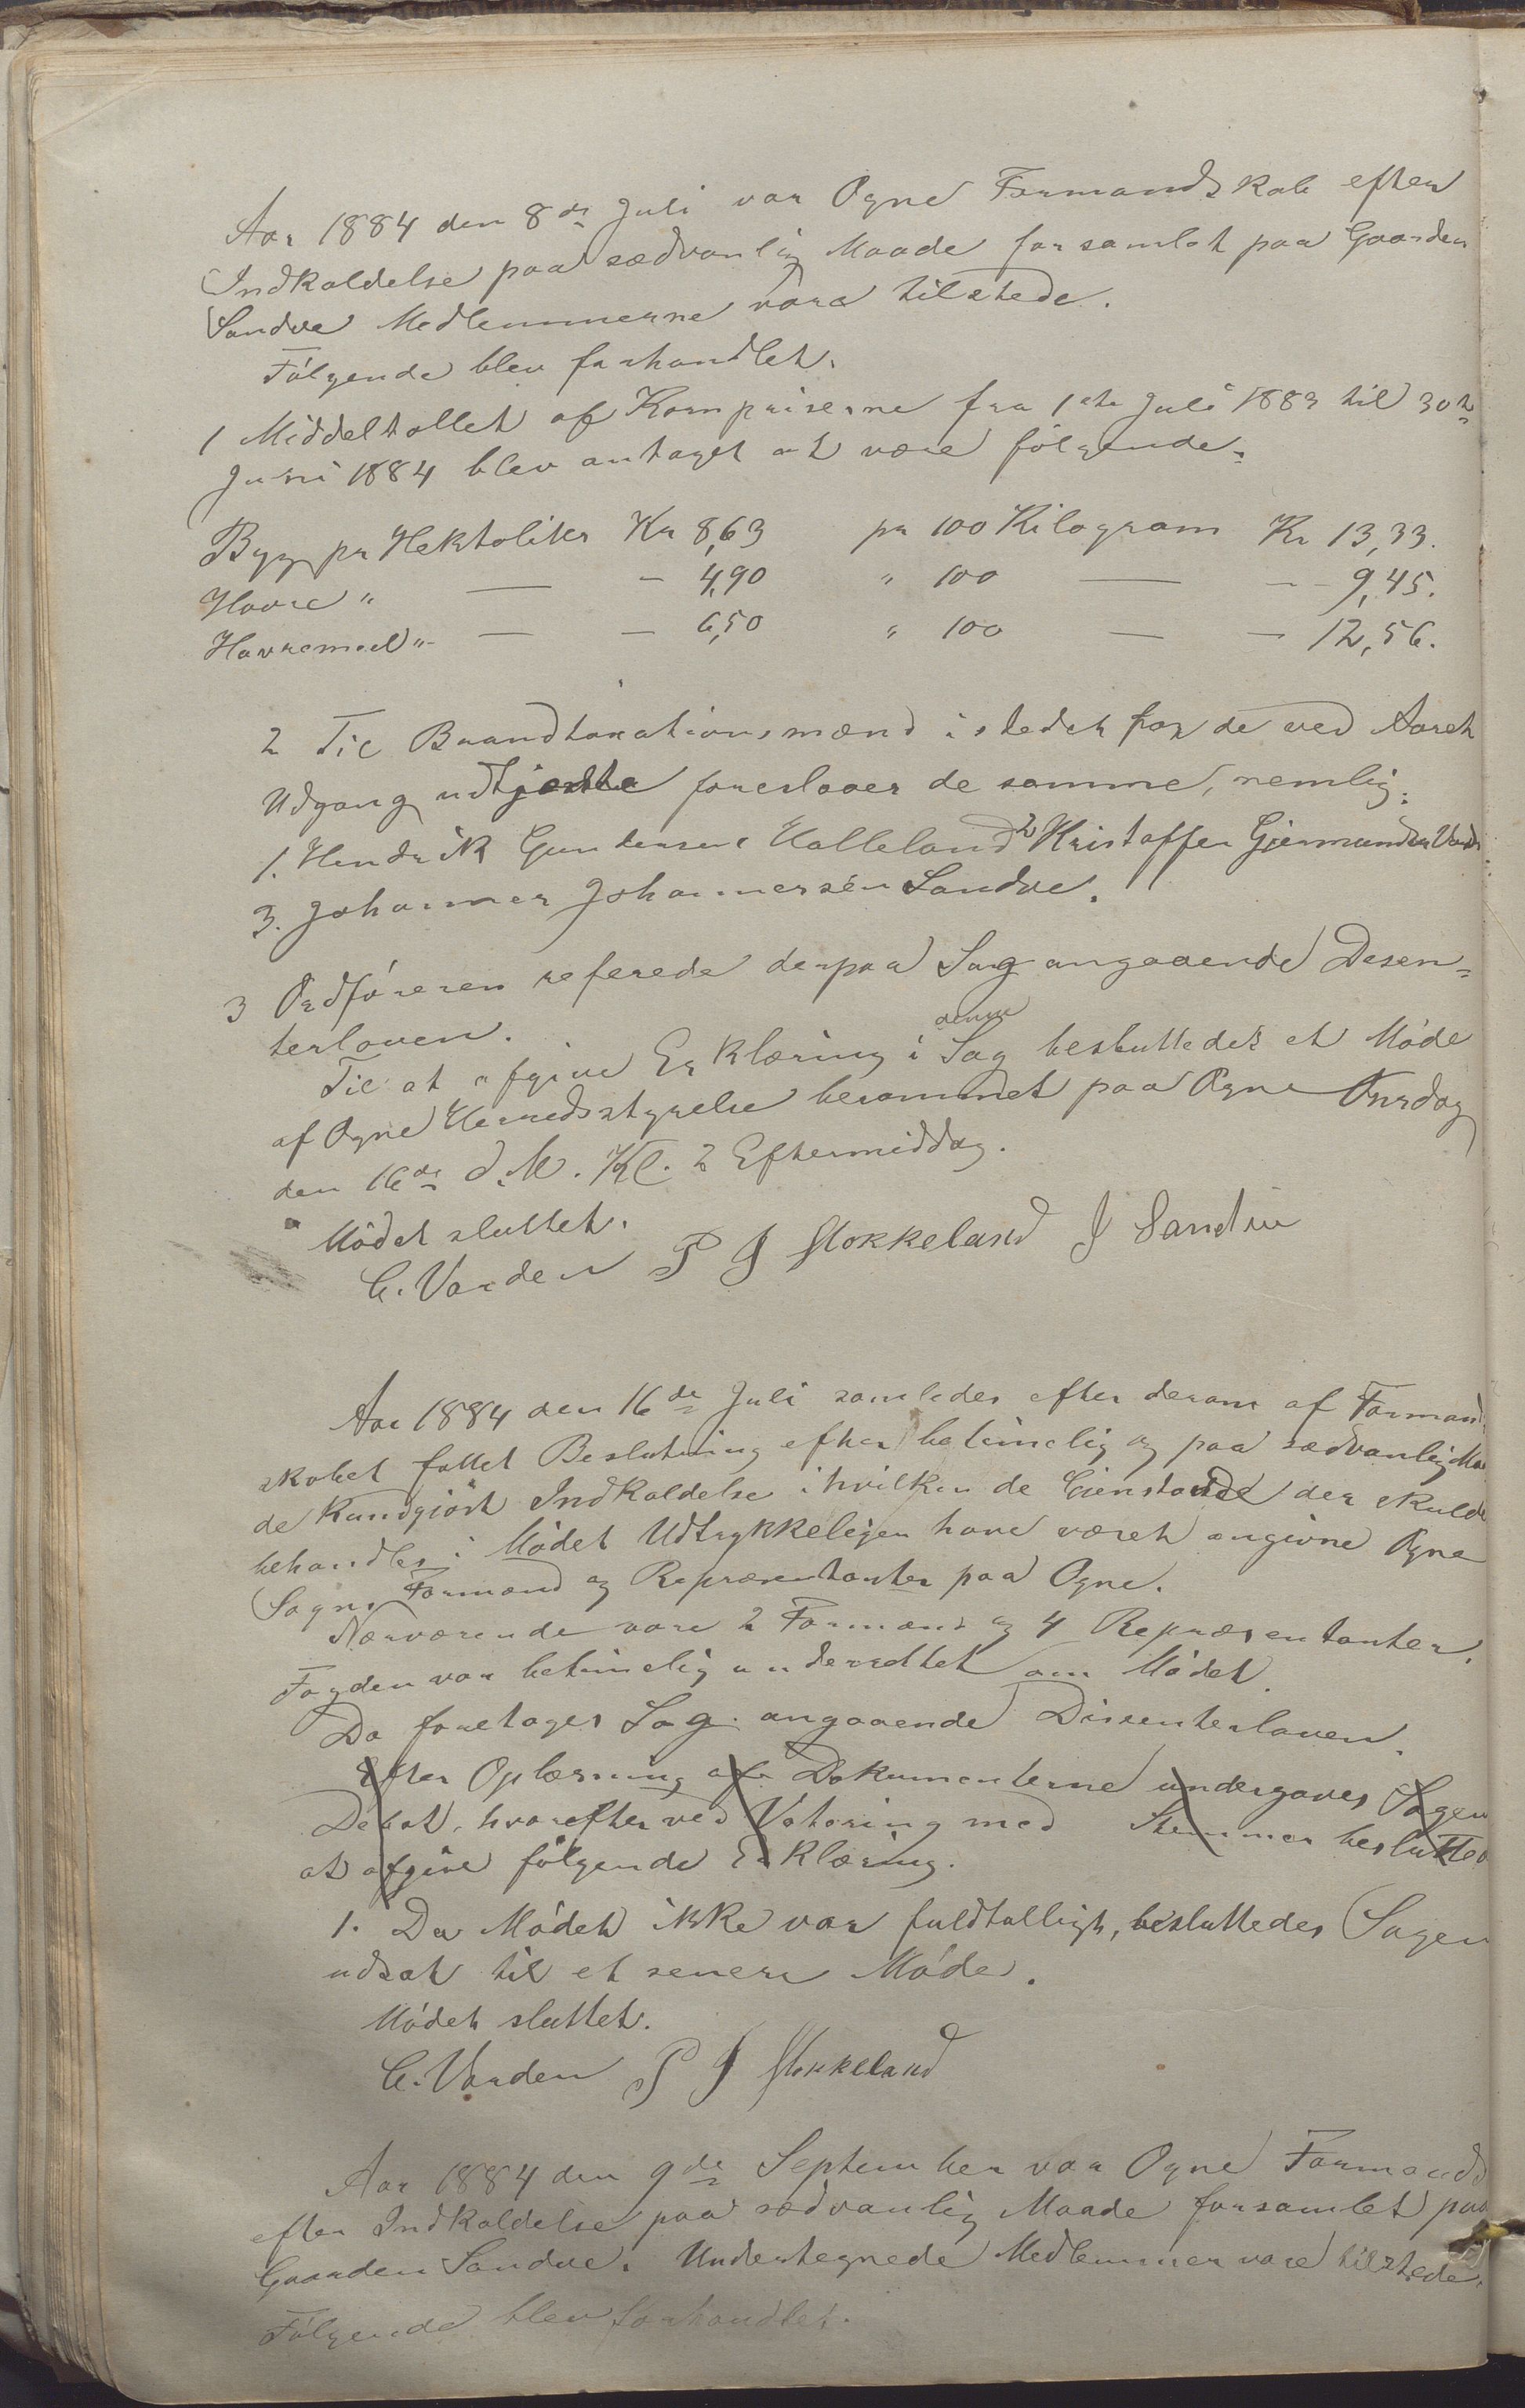 Aar 1884 den 8de Juli var Ogne Formandskab efter
Indkaldelse paa sædvanlig Maade forsamlet paa Gaarden
Sandve Medlemmerne vare tilstede.
Følgende blev forhandlet.
1 Middeltallet af Kornpriserne fra 1ste Juli 1883 til 30te
Juni 1884 blev antaget at være følgende:
Byg pr Hektoliter Kr 8,63 pr 100 Kilogram Kr 13,33.
Havre " — – 4,90 " 100 — – 9,45.
Havremeel " — – 6,50 " 100 — – 12,56.
2 Til Brandtaxationsmænd istedet for de ved Aaret
Udgang udtjente foreslaaer de samme, nemlig:
1. Hendrik Gundersen Halleland 2 Kristoffer Gjermundsen
3. Johannes Johannersen Sandve.
3 Ordføreren referede derpaa Sag angaaende Desen-
terloven.
Til at afgive Erklæring i denne Sag besluttedes et Møde
af Ogne Herredsstyrelse berammet paa Ogne Onsdag
den 16de d.M. Kl. 2 Eftermiddag.
Mødet sluttet.
C. Varden P J Stokkeland J Sandve
Aar 1884 den 16de Juli samledes efter derom af Formand
skabet fattet Beslutning efter betimelig og paa sædvanlig Maa
de Kundgjort Indkaldelse i hvilken de Gjenstande der skulde
behandles i Mødet Udtrykkeligen have været angivne Ogne
Sogns Formænd og Repræsentanter paa Ogne.
Nærværende vare 2 Formænd og 4 Repræsentanter.
Fogden var betimelig underrettet om Mødet.
Da foretages Sag angaaende Dissenterloven.
Efter Oplæsning af Dokumenterne undergaves Sagen
Debat, hvorefter ved Votering med Stemmer besluttes
at afgive følgende Erklæring.
1. Da Mødet ikke var fuldtalligt, besluttedes Sagen
udsat til et senere Møde.
Mødet sluttet.
C. Varden P J Stokkeland
Aar 1884 den 9de September var Ogne Formands
efter Indkaldelse paa sædvanlig Maade forsamlet paa
Gaarden Sandve. Undertegnede Medlemmer vare tilstede.
Følgende blev forhandlet.